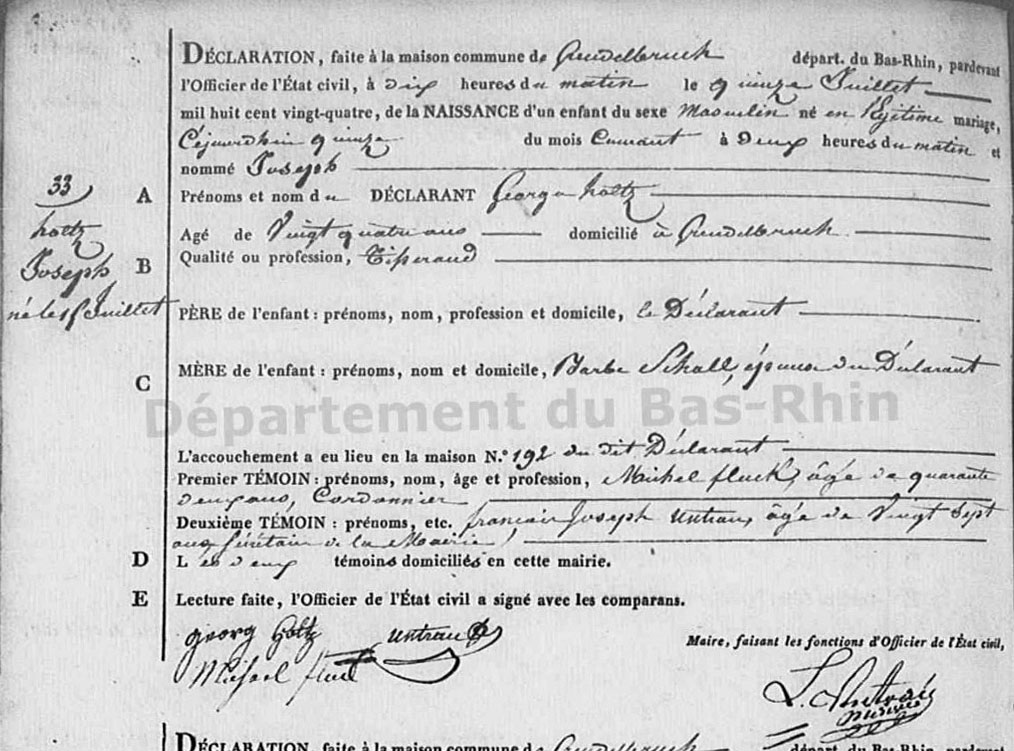 DÉCLARATION, faite à la maison commune de Grendelbruch départ. du Bas-Rhin, pardevant
l'Officier de l'État civil, à dix heures du matin le quinze Juillet
mil huit cent vingt-quatre, de la NAISSANCE d'un enfant du sexe Masculin né en légitime mariage,
Céjourdhui quinze du mois Courant à Deux heures du matin et
nommé Joseph
33
A Prénoms et nom du DÉCLARANT George holtz
holtz
Agé de Vingt quatre ans domicilié à Grendelbruch
Joseph
B Qualité ou profession, Tisserand
né le 15 Juillet
PÈRE de l'enfant : prénoms, nom, profession et domicile, le Déclarant
C MÈRE de l'enfant : prénoms, nom et domicile, Barbe Schall, épouse du Déclarant
Département du Bas-Rhin
L'accouchement a eu lieu en la maison N.º 192 du dit Déclarant
Premier TÉMOIN : prénoms, nom, âge et profession, Michel fluck, âgé de quarante
deux ans, Cordonnier
Deuxième TÉMOIN : prénoms, etc. françois Joseph untrau, âgé de Vingt Sept
ans, Sécrétaire de la Mairie
D Les deux témoins domiciliés en cette mairie.
E Lecture faite, l'Officier de l'État civil a signé avec les comparans.
georg holtz untrau
Maire, faisant les fonctions d'Officier de l'État civil,
Michael fluck
DÉCLARATION, faite à la maison commune de Grendelbruch départ. du Bas-Rhin, pardevant